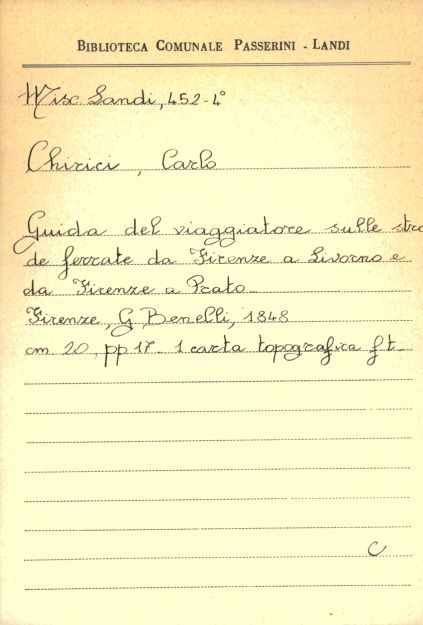 BIBLIOTECA COMUNALE PASSERINI - LANDI
Misc. Landi, 452-4°
Chirici, Carlo
Guida del viaggiatore sulle stra
de ferrate da Firenze a Livorno e
da Firenze a Prato -
Firenze, G. Benelli, 1848
cm 20, pp 17 - 1 carta topografica f t -
C